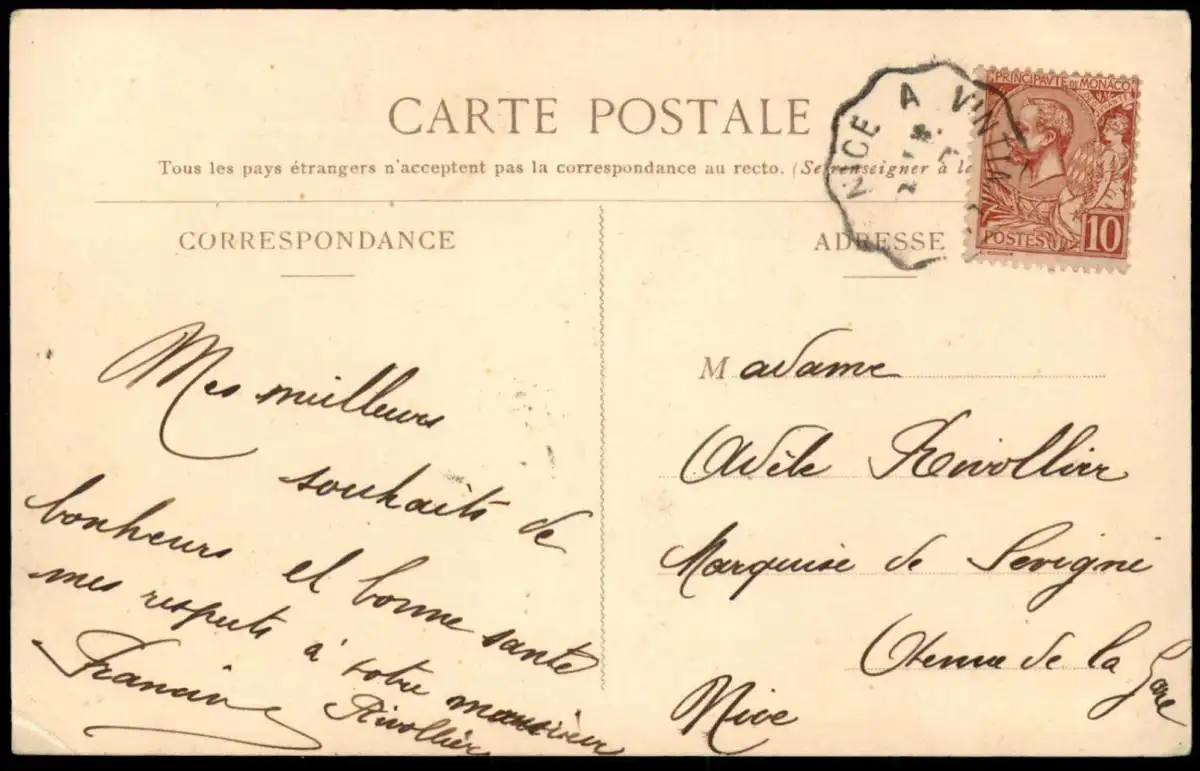 CARTE POSTALE
Tous les pays étrangers n'acceptent pas la correspondance au recto. (Se renseigner à la
NICE A VINTIM
PRINCIPAVTE DE MONACO
POSTES 10
CORRESPONDANCE
Mes meilleurs
souhaits de
bonheurs et bonne santé
mes respects à votre monsieur
Rivollier
Francine
ADRESSE
Madame
Adèle Rivollier
Marquise de Sevigné
Avenue de la Gare
Nice